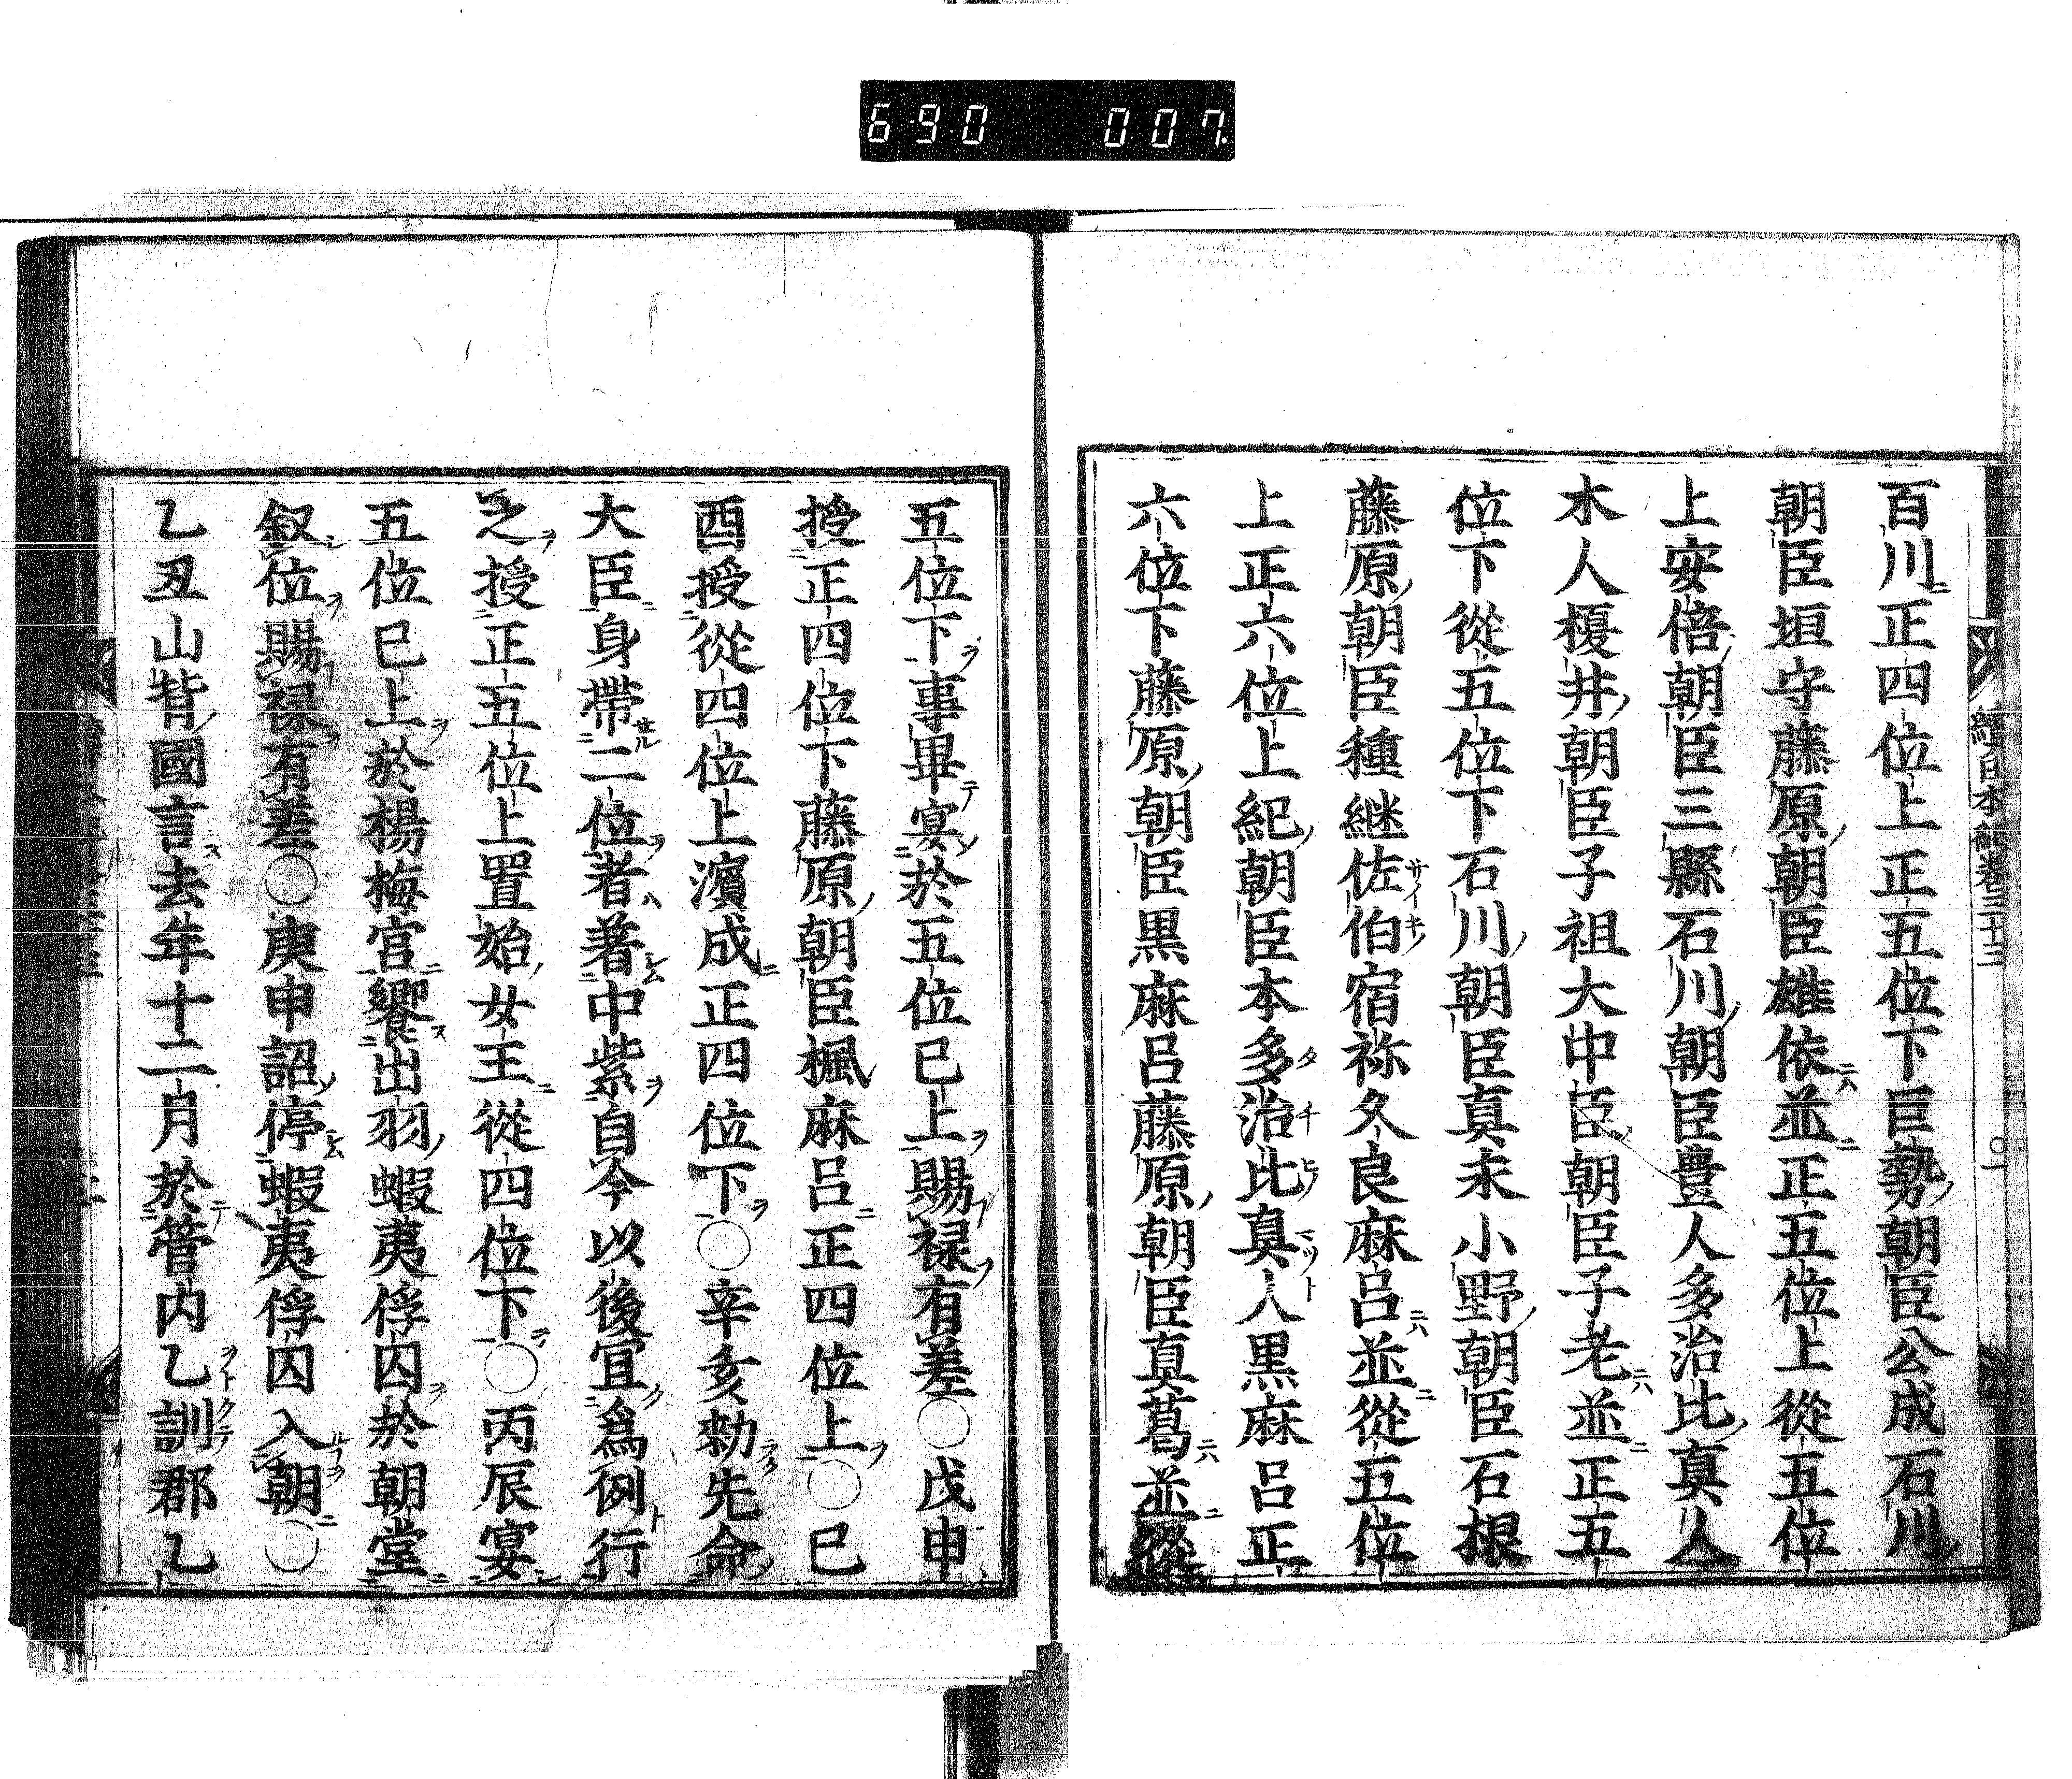 690 007
百川正四位上正五位下巨勢朝臣公成石川
朝臣垣守藤原朝臣雄依並正五位上從五位
上安倍朝臣三縣石川朝臣豊人多治比真人
木人榎井朝臣子祖大中臣朝臣子老並正五
位下從五位下石川朝臣真末小野朝臣石根
藤原朝臣種継佐伯宿祢久良麻呂並從五位
上正六位上紀朝臣本多治比真人黒麻呂正
六位下藤原朝臣黒麻呂藤原朝臣真葛並從
五位下事畢宴於五位已上賜禄有差〇戊申
授正四位下藤原朝臣楓麻呂正四位上〇巳
酉授從四位上濵成正四位下〇辛亥勑先命
大臣身帶二位者著中紫自今以後宜爲例行
之授正五位上置始女王從四位下〇丙辰宴
五位已上於楊梅宮饗出羽蝦夷俘囚於朝堂
叙位賜禄有差〇庚申詔停蝦夷俘囚入朝〇
乙丑山背國言去年十二月於管内乙訓郡乙
續日本紀卷三十三